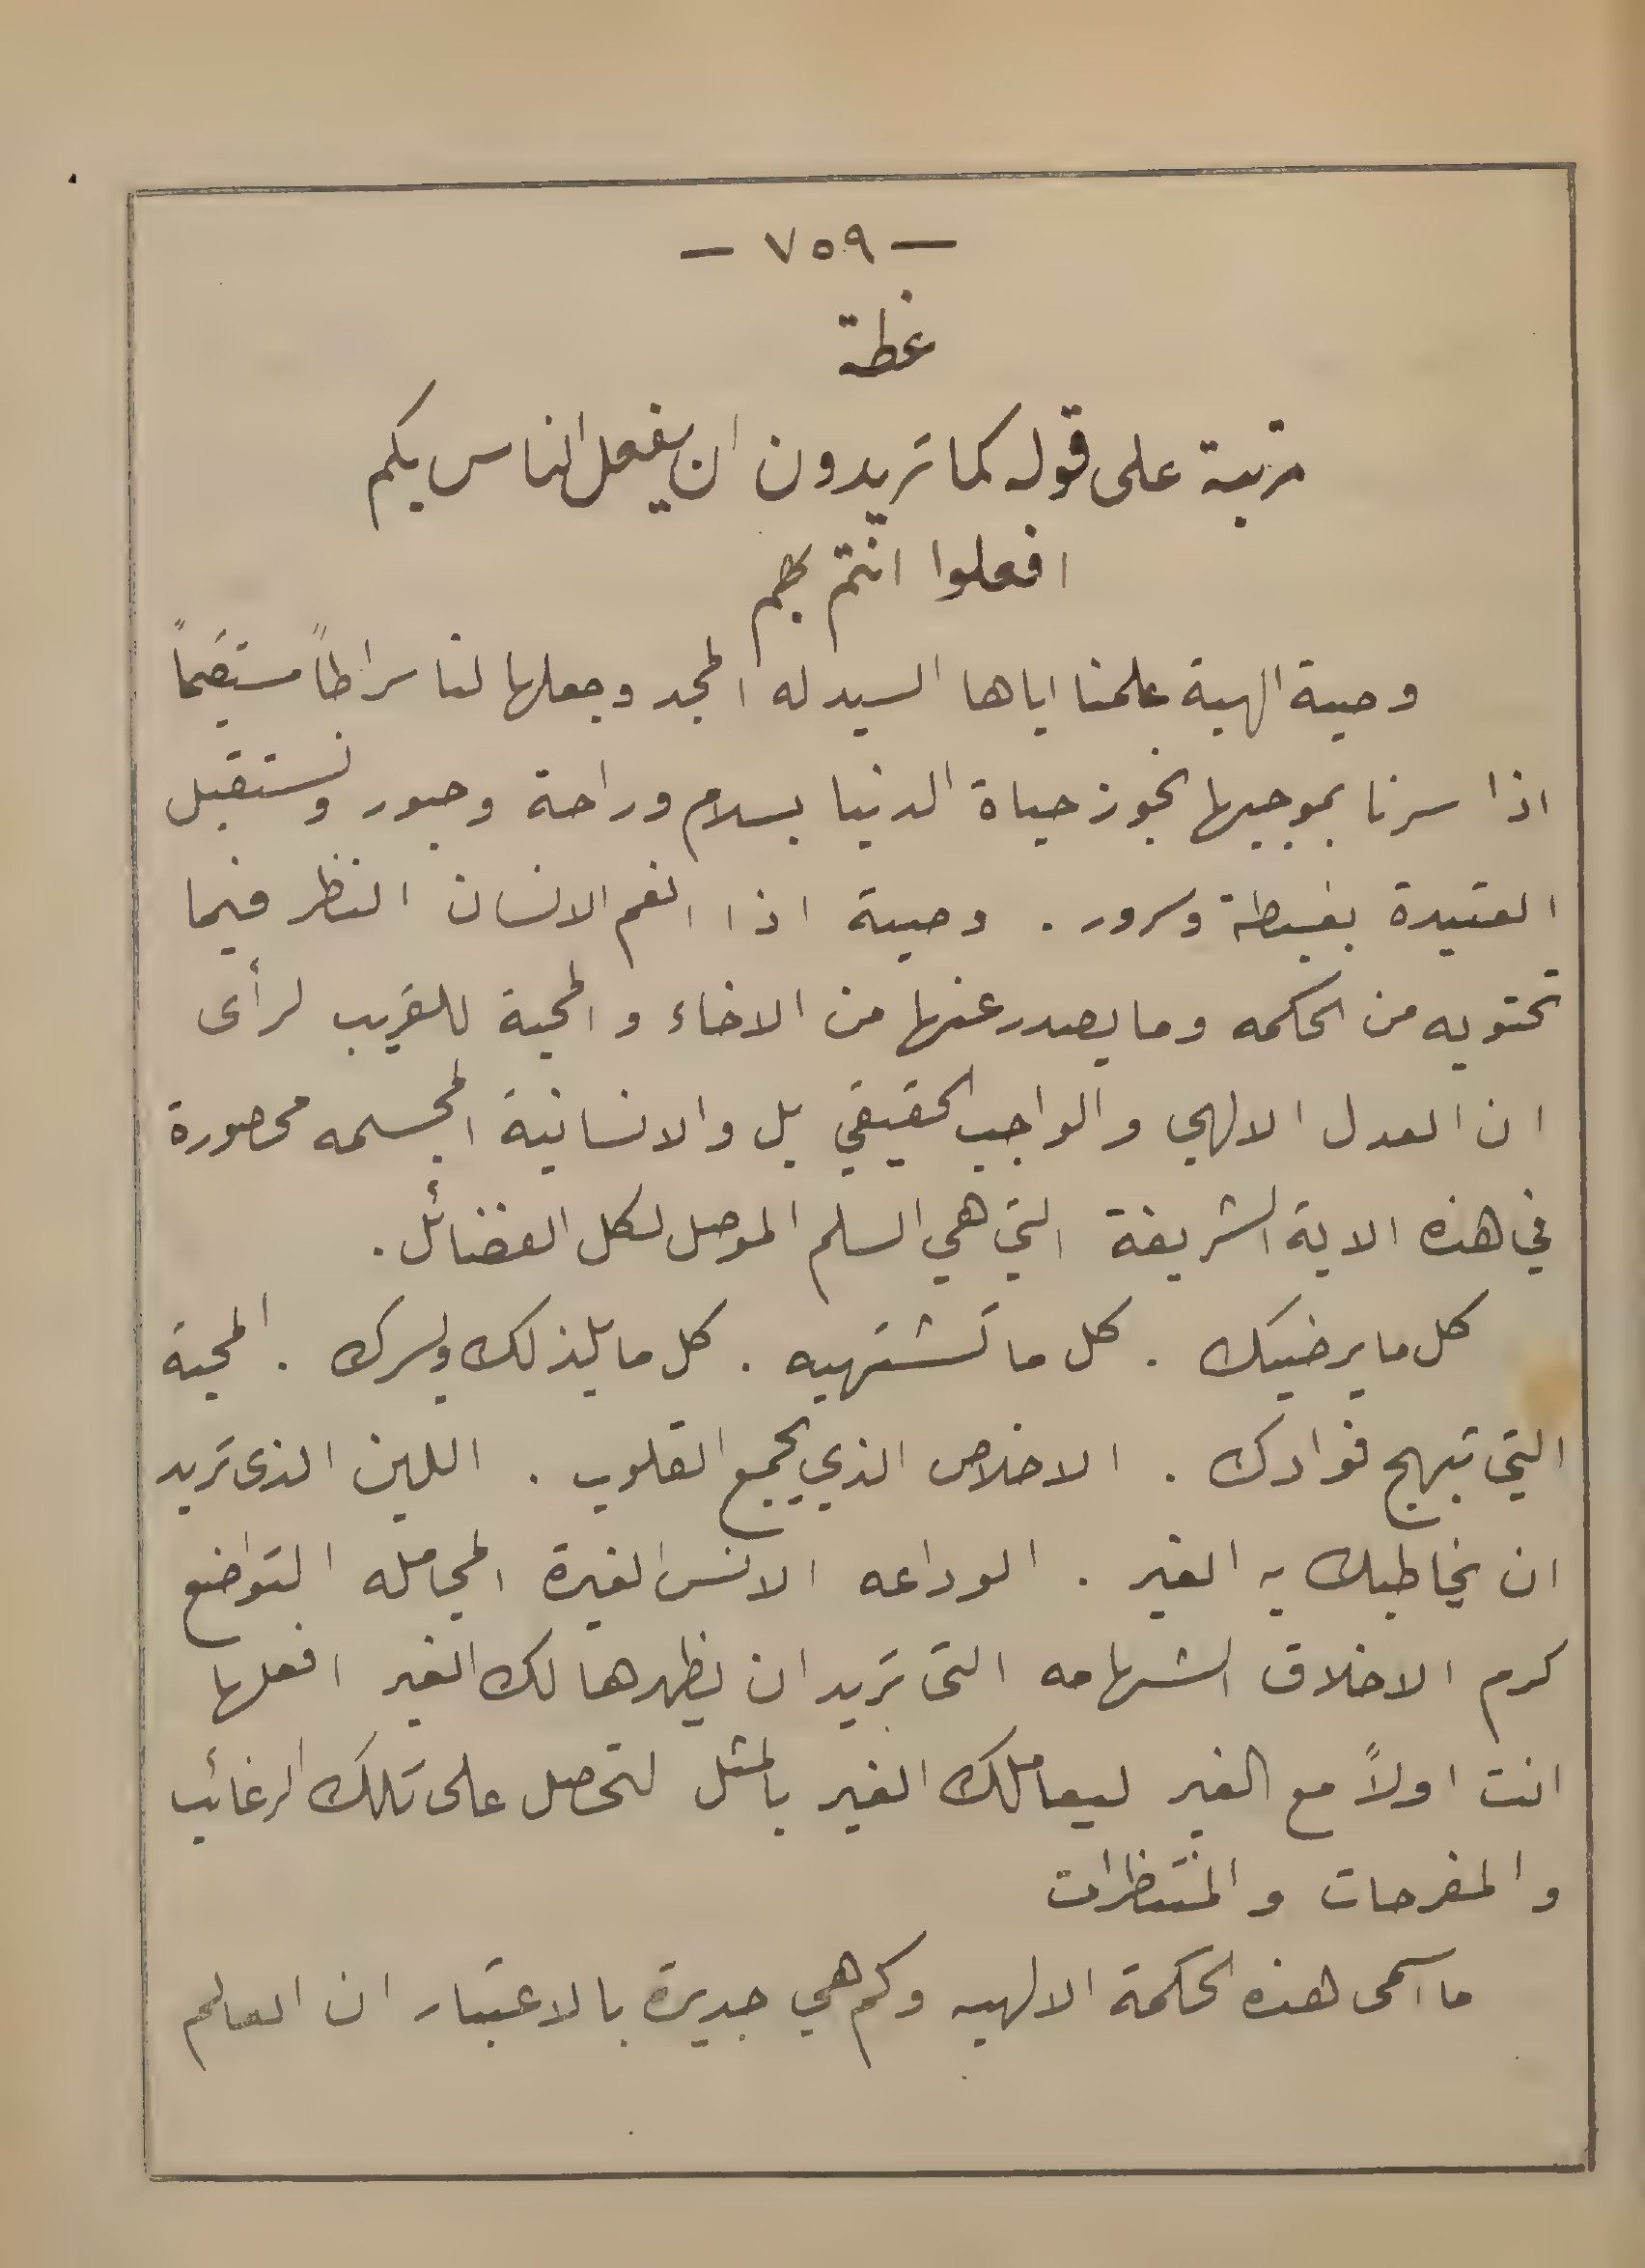 — ٧٥٩ —
غطة
مرتبة على قوله كما تريدون ان يفعل الناس بكم
افعلوا انتم بهم
وصية الهية علمنا اياها السيد له المجد وجعلها لنا سراطاً مستقيماً
اذا سرنا بموجبها نجوز حياة الدنيا بسلام وراحة وحبور ونستقبل
العتيدة بغبطة وسرور . وصية اذا انعم الانسان النظر فيما
تحتويه من الحكمه وما يصدر عنها من الاخاء والمحبة للقريب لرأى
ان العدل الالهي والواجب الحقيقي بل والانسانية المجسمه محصورة
في هذه الاية الشريفة التي هي السلم الموصل لكل الفضائل .
كل ما يرضيك . كل ما تشتهيه . كل ما يلذ لك ويسرك . المحبة
التي تبهج فوادك . الاخلاص الذي يجمع القلوب . اللين الذى تريد
ان يخاطبك به الغير . الوداعه الانس الغيرة المجامله التواضع
كرم الاخلاق الشهامه التى تريد ان يظهرها لك الغير افعلها
انت اولاً مع الغير ليعاملك الغير بالمثل لتحصل على تلك الرغائب
والمفرحات والمنتظرات
ما اسمى هذه الحكمة الالهيه وكم هي جديرة بالاعتبار ان العالم